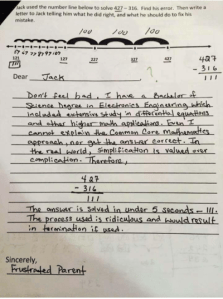 Jack used the number line below to solve 427 - 316. Find his error. Then write
a letter to Jack telling him what he did right, and what he should do to fix his
mistake.
100 100 100
121 127 227 327 427
427
- 316
111
Dear Jack
Don't feel bad. I have a Bachelor of
Science Degree in Electronics Engineering which
included extensive study in differential equations
and other higher math applications. Even I
cannot explain the Common Core mathematics
approach, nor get the answer correct. In
the real world, simplification is valued over
complication. Therefore,
427
- 316
111
The answer is solved in under 5 seconds - 111.
The process used is ridiculous and would result
in termination if used.
Sincerely,
Frustrated Parent